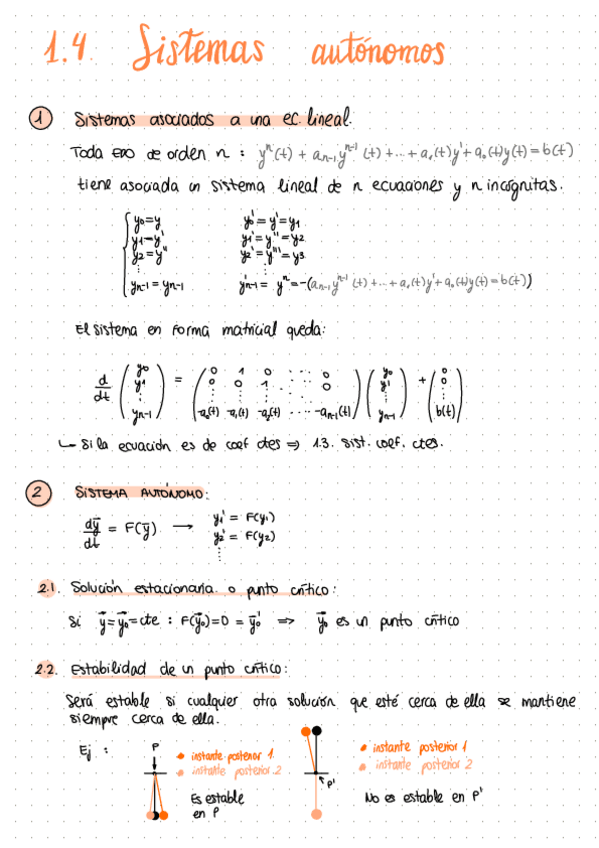 1.4. Sistemas autónomos
1 Sistemas asociados a una ec. lineal.
Toda EDO de orden n : yⁿ(t) + aₙ₋₁yⁿ⁻¹(t) + ... + a₁(t)y' + a₀(t)y(t) = b(t)
tiene asociada un sistema lineal de n ecuaciones y n incógnitas.
y₀ = y y₀' = y' = y₁
y₁ = y' y₁' = y'' = y₂
y₂ = y'' y₂' = y''' = y₃
⋮ ⋮
yₙ₋₁ = yₙ₋₁ y'ₙ₋₁ = yⁿ = -(aₙ₋₁yⁿ⁻¹(t) + ... + a₁(t)y' + a₀(t)y(t) = b(t))
El sistema en forma matricial queda:
d/dt (y₀ y₁ ⋮ yₙ₋₁) = (0 1 0 ... 0 / 0 0 1 ... 0 / ⋮ ⋮ ⋮ ⋮ / -a₀(t) -a₁(t) -a₂(t) .... -aₙ₋₁(t)) (y₀ y₁ ⋮ yₙ₋₁) + (0 0 ⋮ b(t))
↳ Si la ecuación es de coef ctes ⇒ 1.3. Sist. coef. ctes.
2 SISTEMA AUTÓNOMO:
dȳ/dt = F(ȳ) → y₁' = F(y₁)
y₂' = F(y₂)
⋮
2.1. Solución estacionaria o punto crítico:
Si ȳ = ȳ₀ = cte : F(ȳ₀) = 0 = ȳ₀' ⇒ ȳ₀ es un punto crítico
2.2. Estabilidad de un punto crítico:
Será estable si cualquier otra solución que esté cerca de ella se mantiene
siempre cerca de ella.
Ej : P
• instante posterior 1
• instante posterior 2
Es estable
en P
P'
• instante posterior 1
• instante posterior 2
No es estable en P'